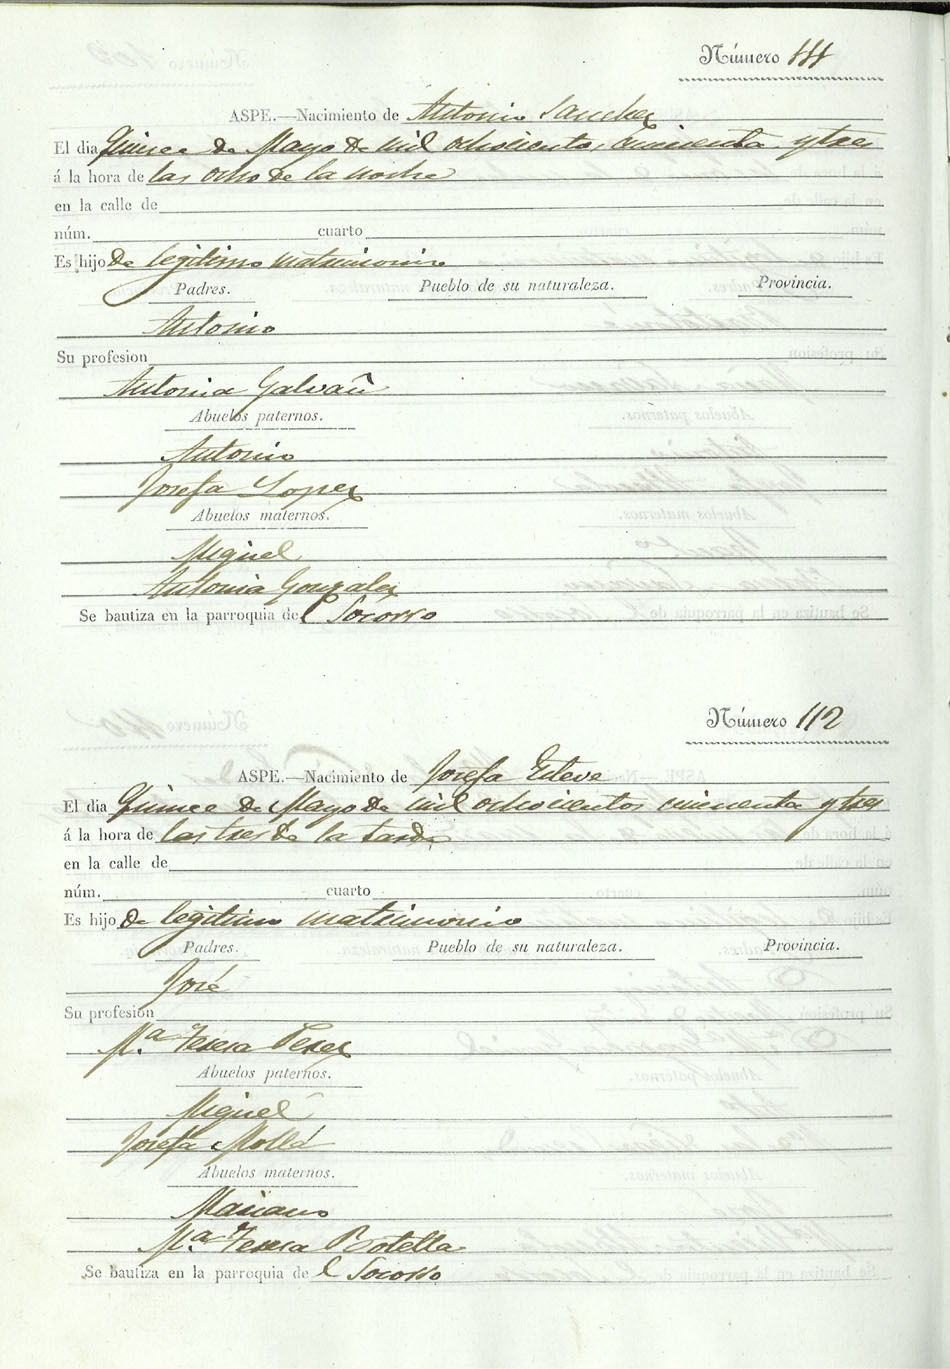 Número 111
ASPE.—Nacimiento de Antonio Sanchez
El dia Quince de Mayo de mil ochocientos cincuenta y tres
á la hora de las ocho de la noche
en la calle de
núm. cuarto
Es hijo de legitimo matrimonio
Padres. Pueblo de su naturaleza. Provincia.
Antonio
Su profesion
Antonia Galvañ
Abuelos paternos.
Antonio
Josefa Lopez
Abuelos maternos.
Miguel
Antonia Gonzalez
Se bautiza en la parroquia del Socorro
Número 112
ASPE.—Nacimiento de Josefa Esteve
El dia Quince de Mayo de mil ochocientos cincuenta y tres
á la hora de las tres de la tarde
en la calle de
núm. cuarto
Es hijo de legitimo matrimonio
Padres. Pueblo de su naturaleza. Provincia.
José
Su profesion
Mª. Teresa Perez
Abuelos paternos.
Miguel
Josefa Mollá
Abuelos maternos.
Mariano
Mª. Teresa Botella
Se bautiza en la parroquia de l Socorro